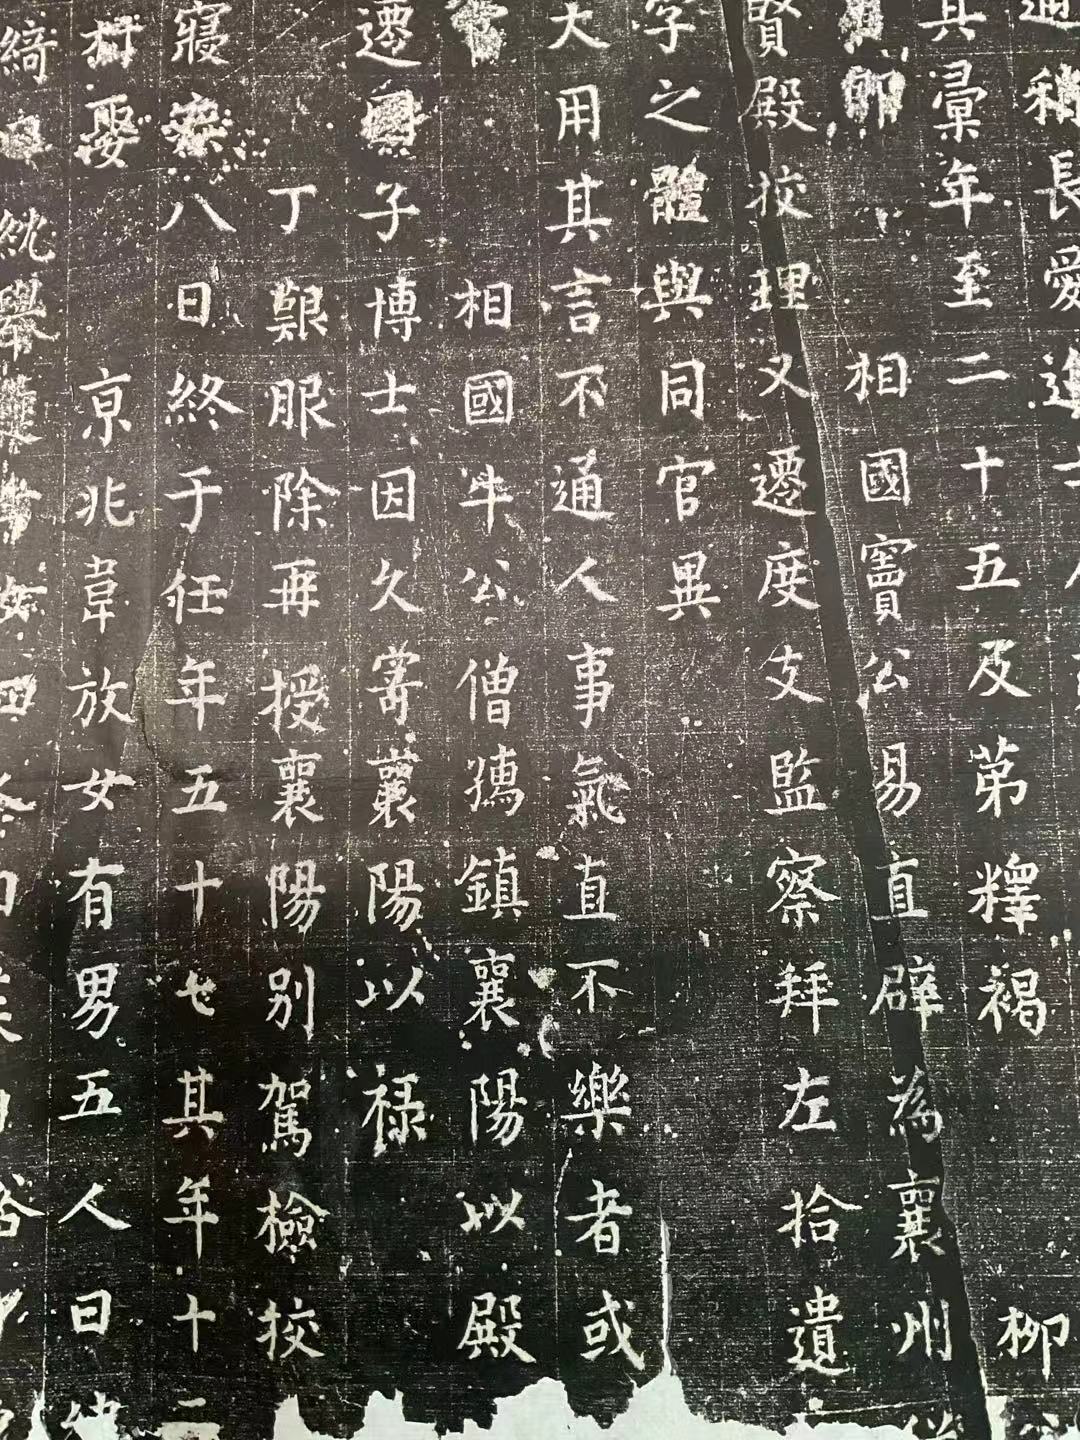 長愛
其彙年至二十五及第釋褐 柳
卿 相國竇公易直辟為襄州
賢殿挍理又遷度支監察拜左拾遺
字之體與同官異
大用其言不通人事氣直不樂者或
相國牛公僧孺鎮襄陽以殿
遷國子博士因久寄襄陽以祿
丁艱服除再授襄陽别駕檢挍
寢疾八日終于任年五十七其年十二
娶 京兆韋放女有男五人曰
綺 紞舉進